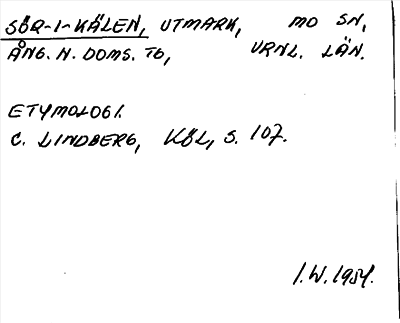 SÖR-I-KÄLEN, UTMARK, MO SN,
ÅNG. N. DOMS. TB, VRNL. LÄN.
ETYMOLOGI.
C. LINDBERG, KÖL, S. 107.
I.W. 1954.